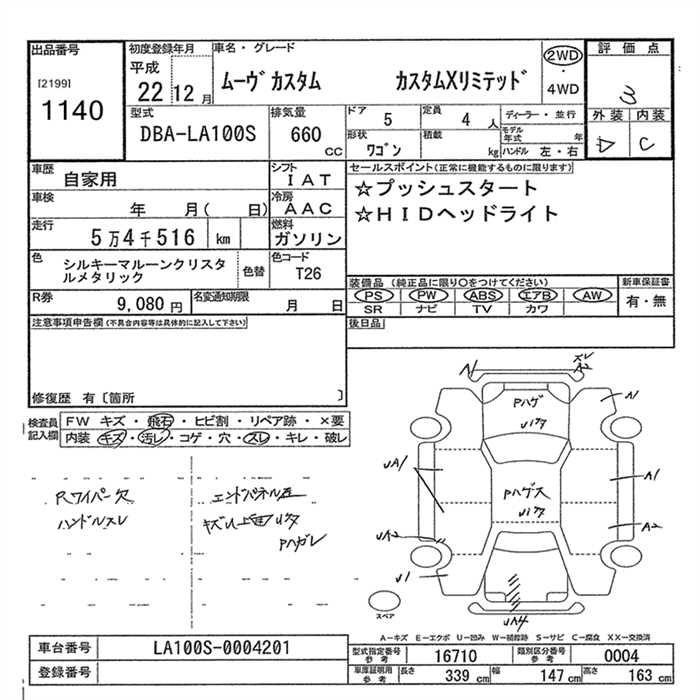 出品番号
[2199]
1140
初度登録年月
平成
22 12 月
車名・グレード
ムーヴカスタム カスタムXリミテッド
2WD
・
4WD
評価点
3
外装 内装
C
型式
DBA-LA100S
排気量
660 cc
ドア 5
定員 4 人
形状 ワゴン
積載 kg
ディーラー・並行
モデル年式 年
ハンドル 左・右
車歴 自家用
シフト IAT
車検 年 月( 日)
冷房 AAC
走行 5万4千516 km
燃料 ガソリン
色 シルキーマルーンクリスタルメタリック
色替
色コード T26
R券 9,080 円
名変通知期限 月 日
セールスポイント(正常に機能するものに限ります)
☆プッシュスタート
☆HIDヘッドライト
装備品 (純正品に限り○をつけてください)
PS PW ABS エアB AW
SR ナビ TV カワ
新車保証書
有・無
後日品
注意事項申告欄 (不具合内容等は具体的に記入して下さい)
修復歴 有〔箇所 〕
検査員記入欄
FW キズ・飛石・ヒビ割・リペア跡・×要
内装 キズ・汚レ・コゲ・穴・スレ・キレ・破レ
Rワイパー欠
ハンドルスレ
エンドパネル
Pハガレ
A1
スレ
A2
A1
Pハゲ
Uイタ
UA1
A1
Pハゲス
Uイタ
UA2
A2
U1
UA4
スペア
A−キズ E−エクボ U−凹み W−補修跡 S−サビ C−腐食 XX−交換済
車台番号 LA100S-0004201
登録番号
型式指定番号 参考 16710
類別区分番号 参考 0004
車庫証明用 参考 長さ 339 cm 幅 147 cm 高さ 163 cm